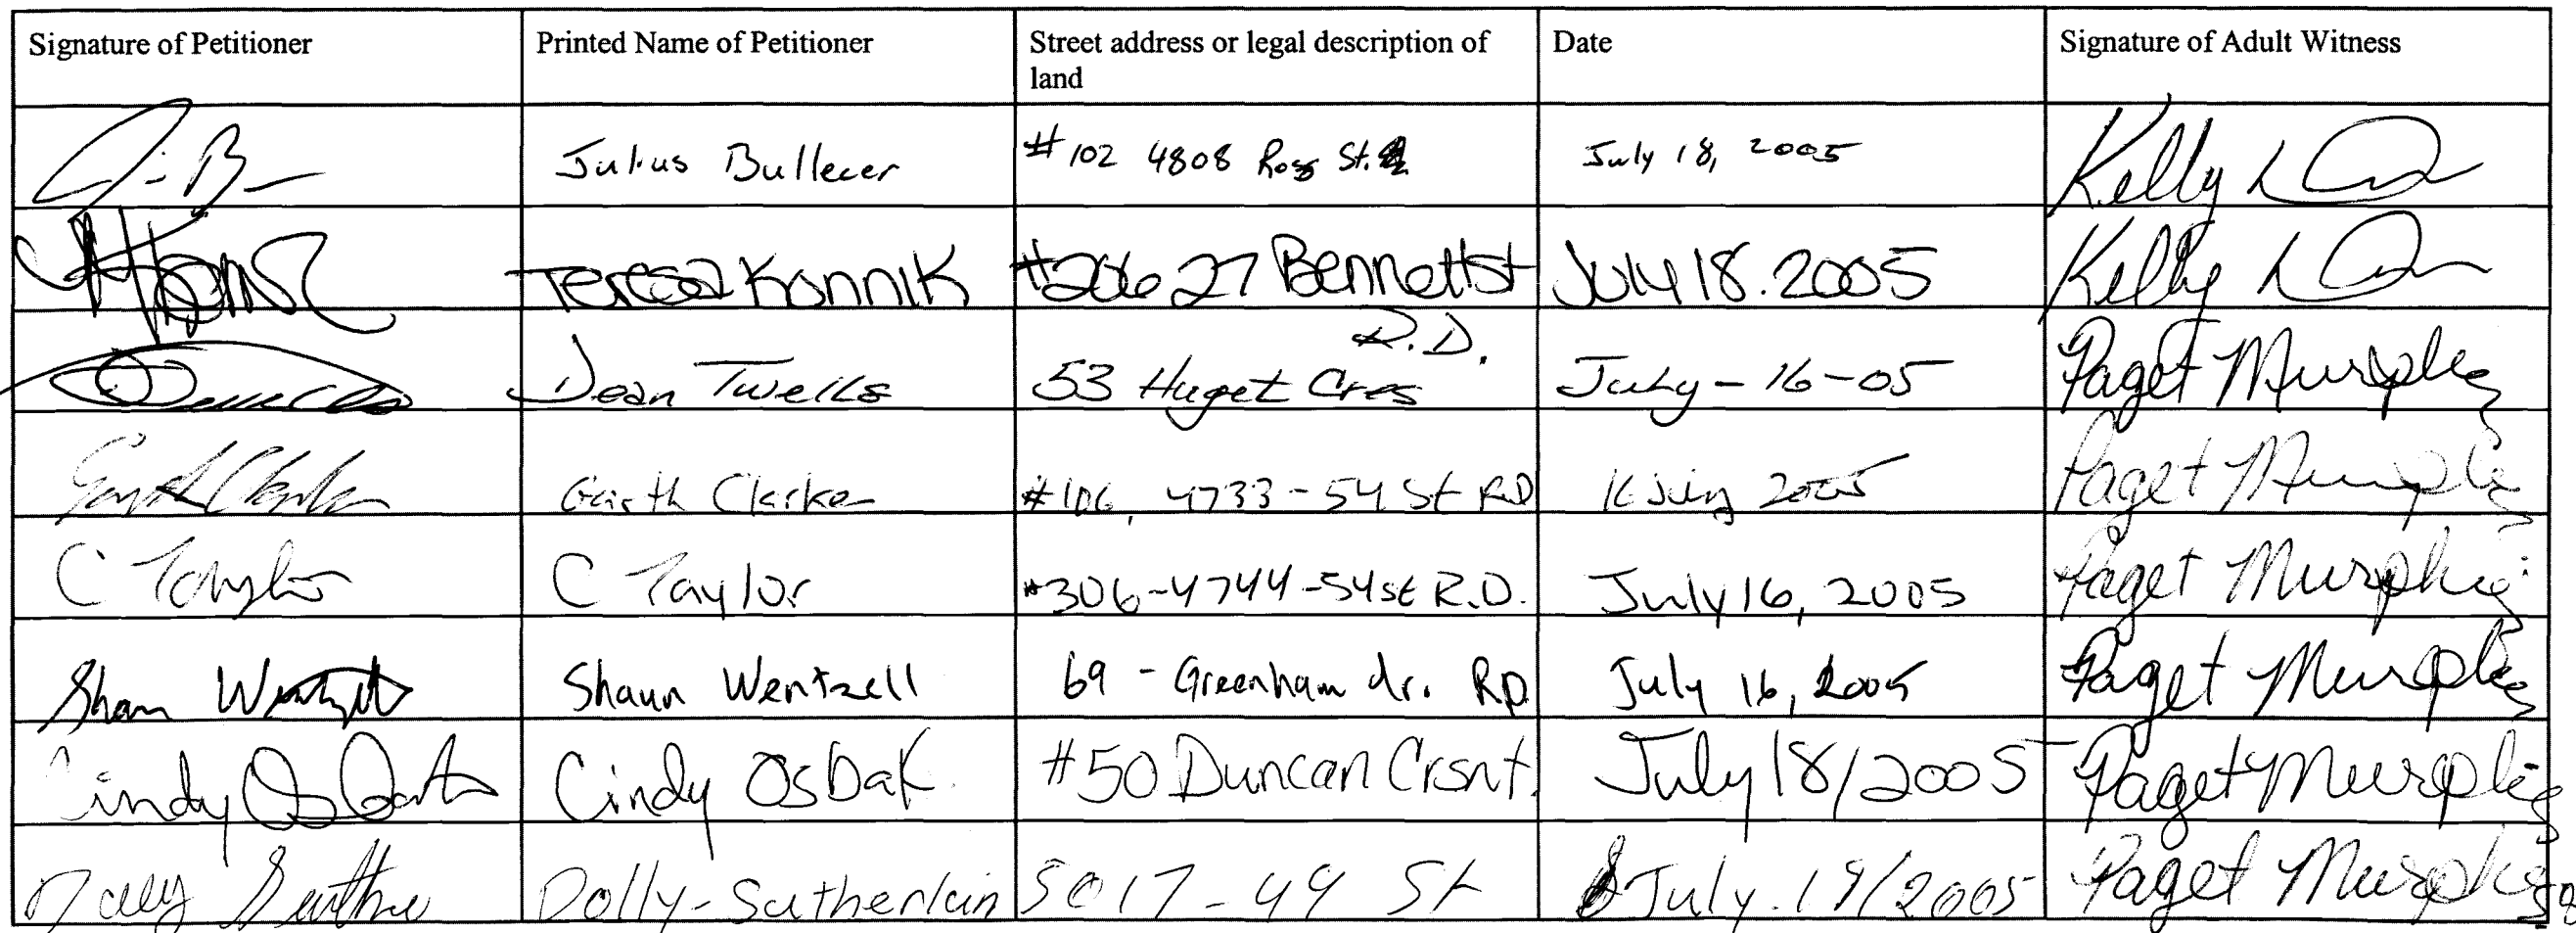 Signature of Petitioner Printed Name of Petitioner Street address or legal description of land Date Signature of Adult Witness
Julius Bullecer #102 4808 Ross St. July 18, 2005 Kelly
Teresa Konnik #206 27 Bennett St July 18. 2005 Kelly
R.D.
Dean Twells 53 Huget Cres July-16-05 Paget Murphy
Garth Clarke #106, 4733-54 St RD 16 July 2005 Paget Murphy
C Taylor C Taylor #306-4744-54st R.D. July 16, 2005 Paget Murphy
Shaun Wentzell Shaun Wentzell 69 - Greenham dr. RD July 16, 2005 Paget Murphy
Cindy Cindy Osbak #50 Duncan Crsnt. July 18/2005 Paget Murphy
Dolly-Sutherlan 5017-49 St July 19/2005 Paget Murphy